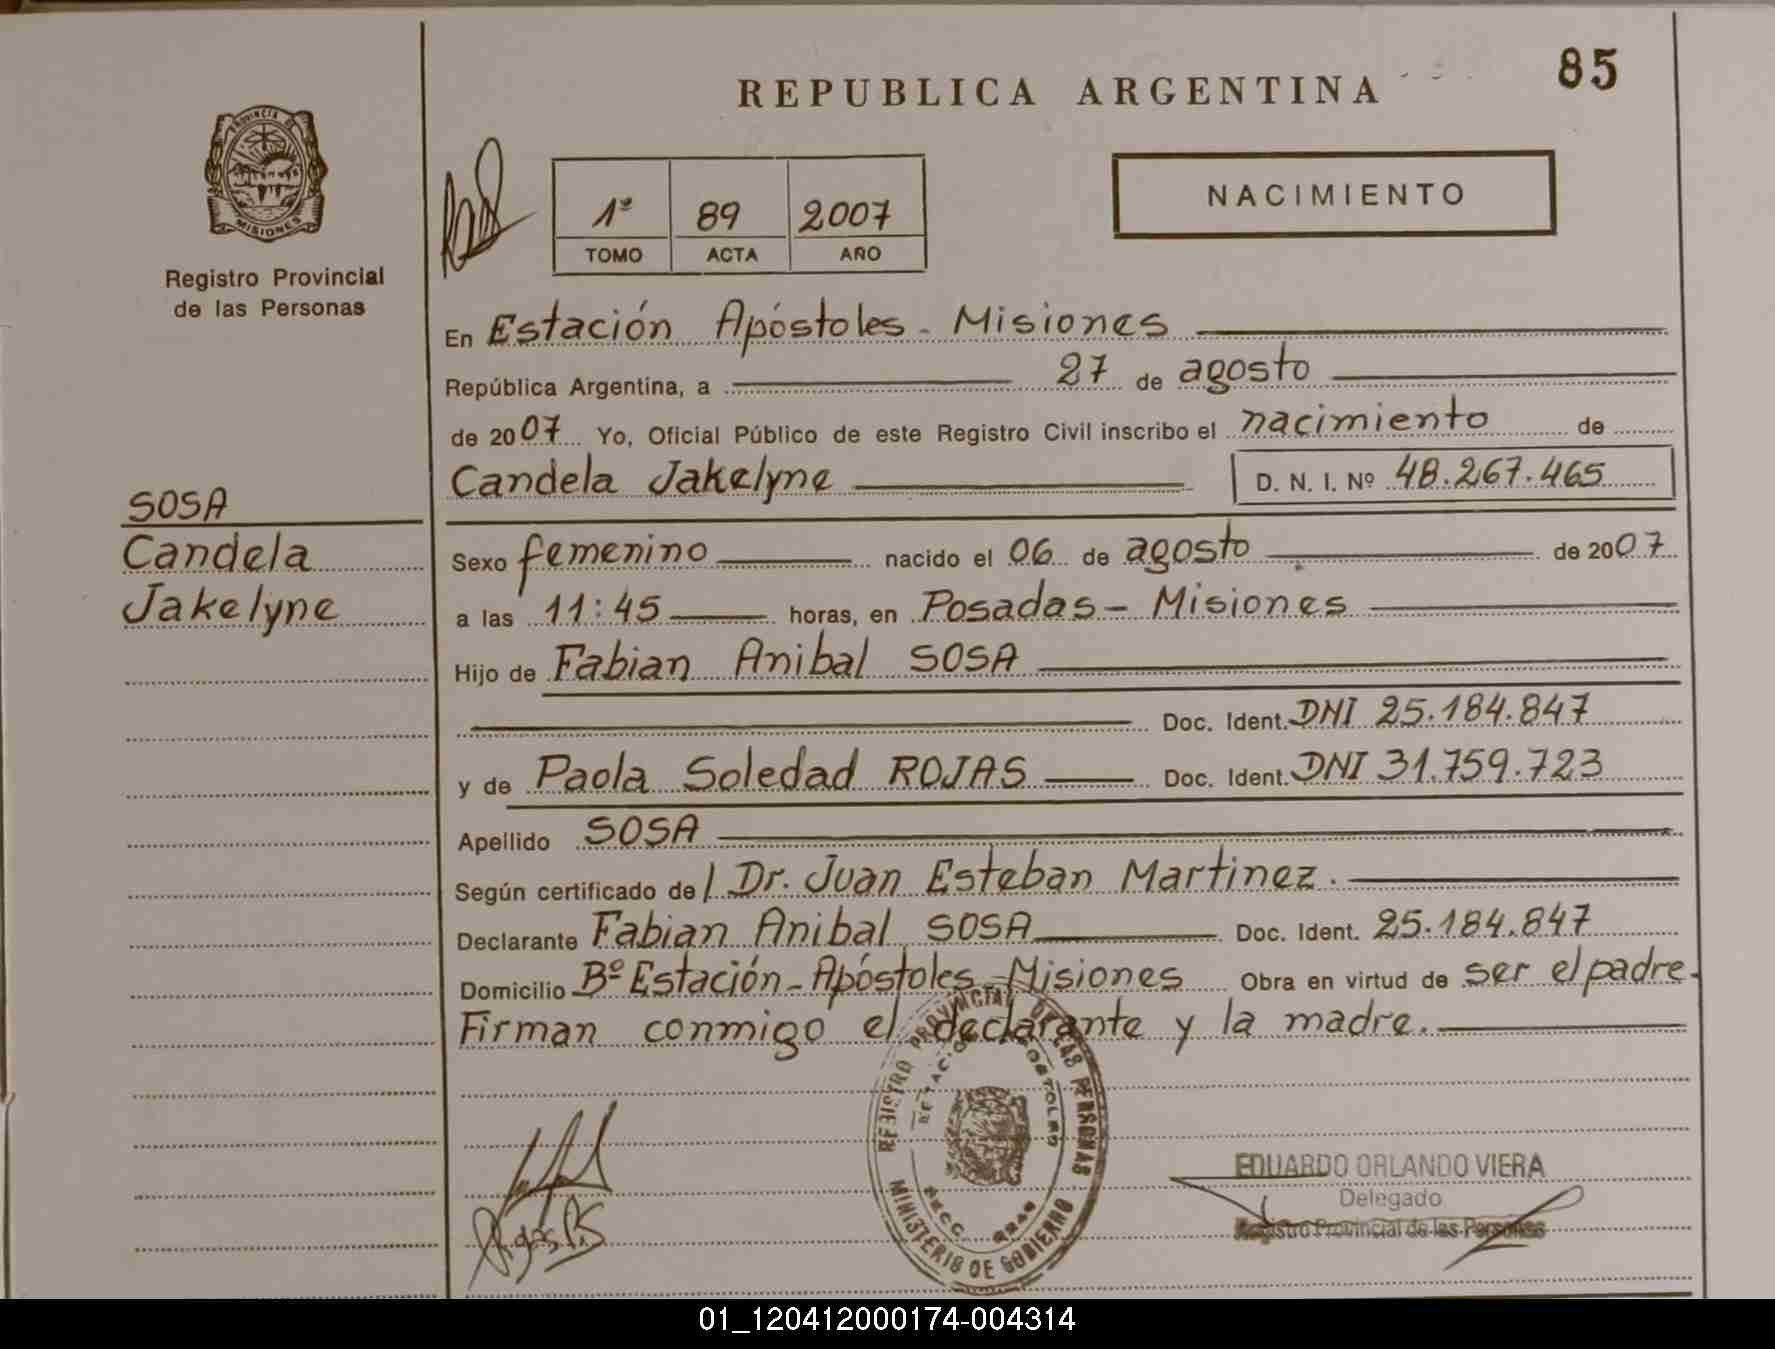 REPUBLICA ARGENTINA
85
PROVINCIA DE
MISIONES
Registro Provincial
de las Personas
1º 89 2007
TOMO ACTA AÑO
NACIMIENTO
En Estación Apóstoles - Misiones
República Argentina, a 27 de agosto
de 2007 Yo, Oficial Público de este Registro Civil inscribo el nacimiento de
Candela Jakelyne D. N. I. Nº 48.267.465
SOSA
Candela
Jakelyne
Sexo femenino nacido el 06 de agosto de 2007
a las 11:45 horas, en Posadas - Misiones
Hijo de Fabian Anibal SOSA
Doc. Ident. DNI 25.184.847
y de Paola Soledad ROJAS Doc. Ident. DNI 31.759.723
Apellido SOSA
Según certificado de / Dr. Juan Esteban Martinez.
Declarante Fabian Anibal SOSA Doc. Ident. 25.184.847
Domicilio Bº Estación - Apóstoles - Misiones Obra en virtud de ser el padre.
Firman conmigo el declarante y la madre.
REGISTRO PROVINCIAL DE LAS PERSONAS
MINISTERIO DE GOBIERNO
EDUARDO ORLANDO VIERA
Delegado
Registro Provincial de las Personas
01_120412000174-004314